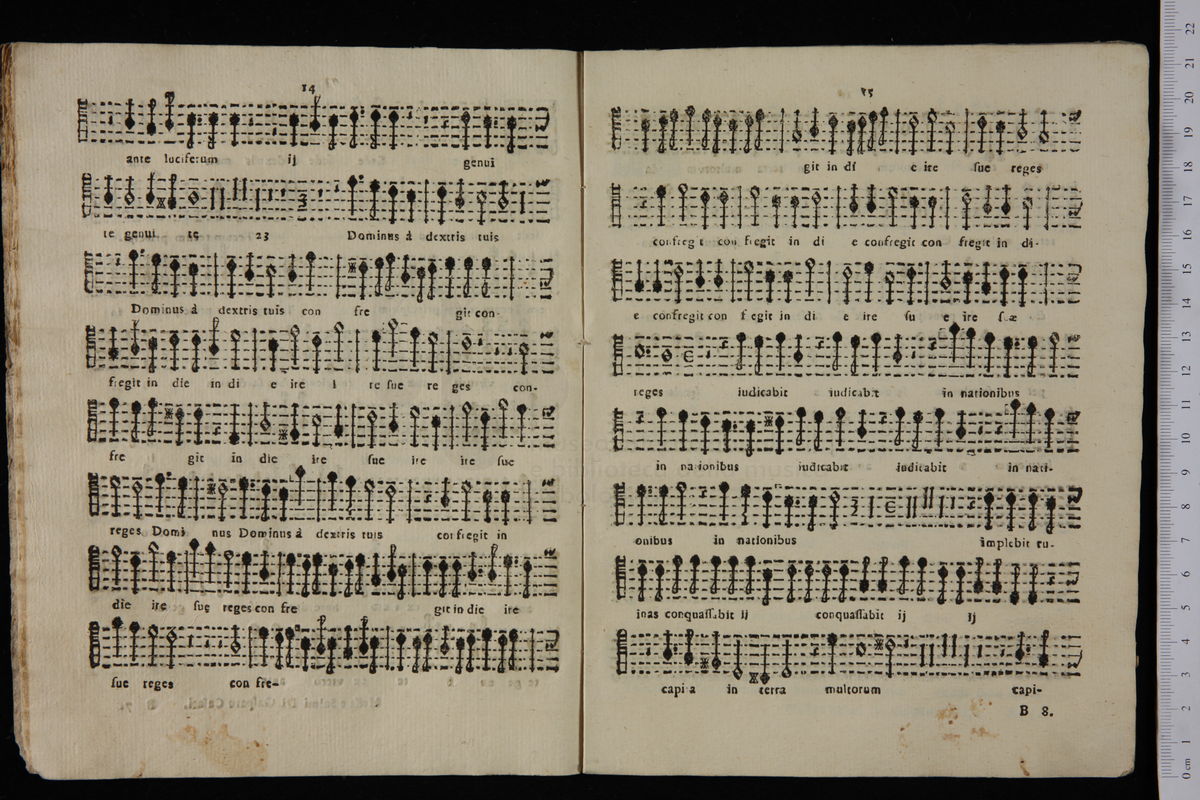 14
ante luciferum ij genui
te genui te 23 Dominus à dextris tuis
Dominus à dextris tuis con fre git con-
fregit in die in di e ire i re sue re ges con-
fre git in die ire sue ire ire sue
reges Domi nus Dominus à dextris tuis confregit in
die ire sue reges con fre git in die ire
sue reges con fre-
15
git in di e ire sue reges
confregit con fregit in di e confregit con fregit in di-
e confregit con fregit in di e ire su e ire suæ
reges iudicabit iudicabit in nationibus
in nationibus iudicabit iudicabit in nati-
onibus in nationibus implebit ru-
inas conquassabit ij conquassabit ij ij
capi a in terra multorum capi-
B 8.
0 cm 1 2 3 4 5 6 7 8 9 10 11 12 13 14 15 16 17 18 19 20 21 22